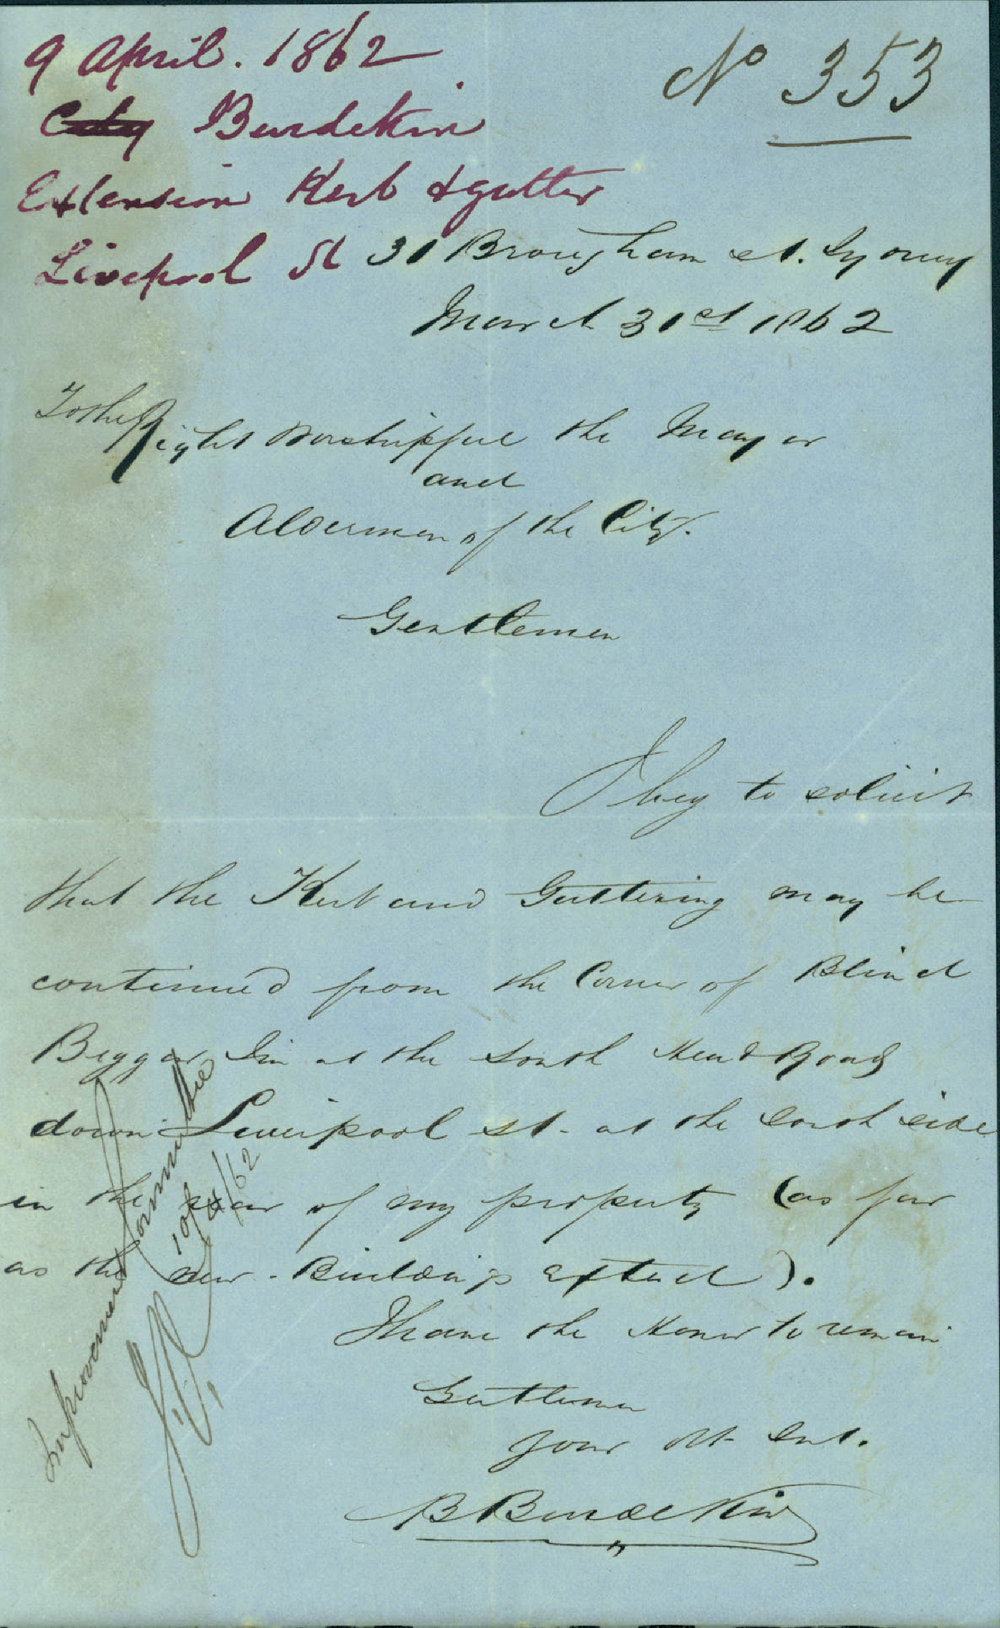 9 April. 1862
No 353
City Burdekin
Extension Kerb & gutter
Liverpool St
31 Brougham st. Sydney
March 31st 1862
To the Right Worshipful the Mayor
and
Aldermen of the City.
Gentlemen
I beg to solicit
that the Kerb and Guttering may be
continued from the Corner of Blind
Beggar Inn at the South Head Road
down Liverpool st. at the south side
in the rear of my property (as far
as the new Buildings extend).
I have the Honor to remain
Gentlemen
your obt Svt.
B Burdekin
Improvement Committee
10/4/62